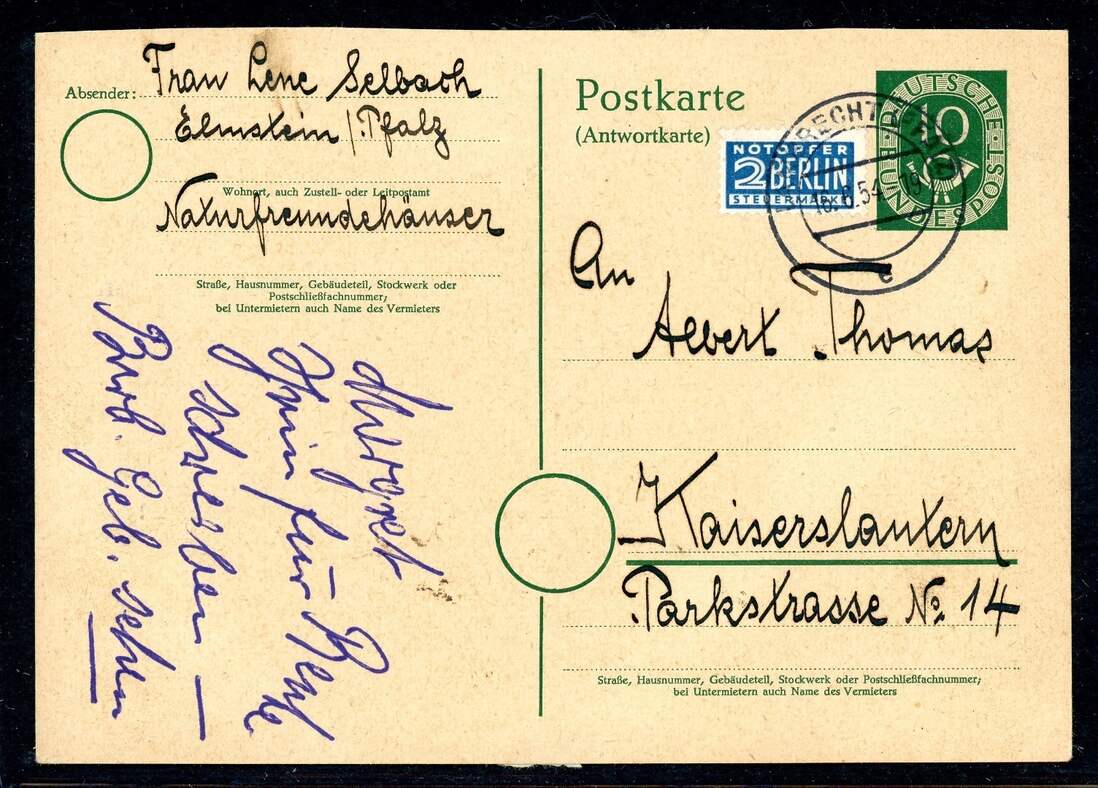 Absender: Frau Lene Selbach
Elmstein/Pfalz
Wohnort, auch Zustell- oder Leitpostamt
Naturfreundehäuser
Straße, Hausnummer, Gebäudeteil, Stockwerk oder
Postschließfachnummer;
bei Untermietern auch Name des Vermieters
Postkarte
(Antwortkarte)
NOTOPFER
2 BERLIN
STEUERMARKE
10
DEUTSCHE BUNDESPOST
6.54-19
e
An
Albert Thomas
Kaiserslautern
Parkstrasse No. 14
Straße, Hausnummer, Gebäudeteil, Stockwerk oder Postschließfachnummer;
bei Untermietern auch Name des Vermieters
für
schreiben —
Geb. sehen